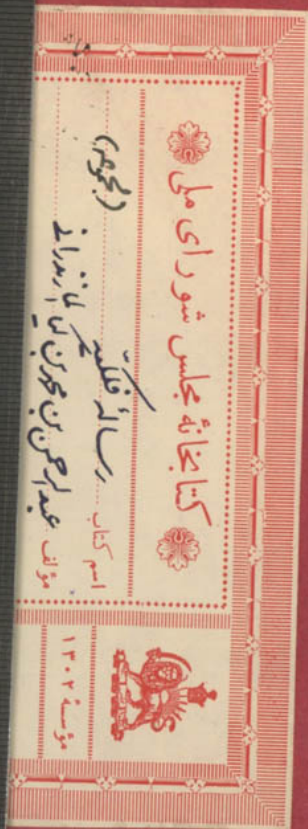 کتابخانهٔ مجلس شورای ملی
(نجوم)
اسم کتاب رسالهٔ فلکیه
مؤلف عبدالرحمن بن محمد بن کیا مازندرانی
مؤسسهٔ ۱۳۰۲